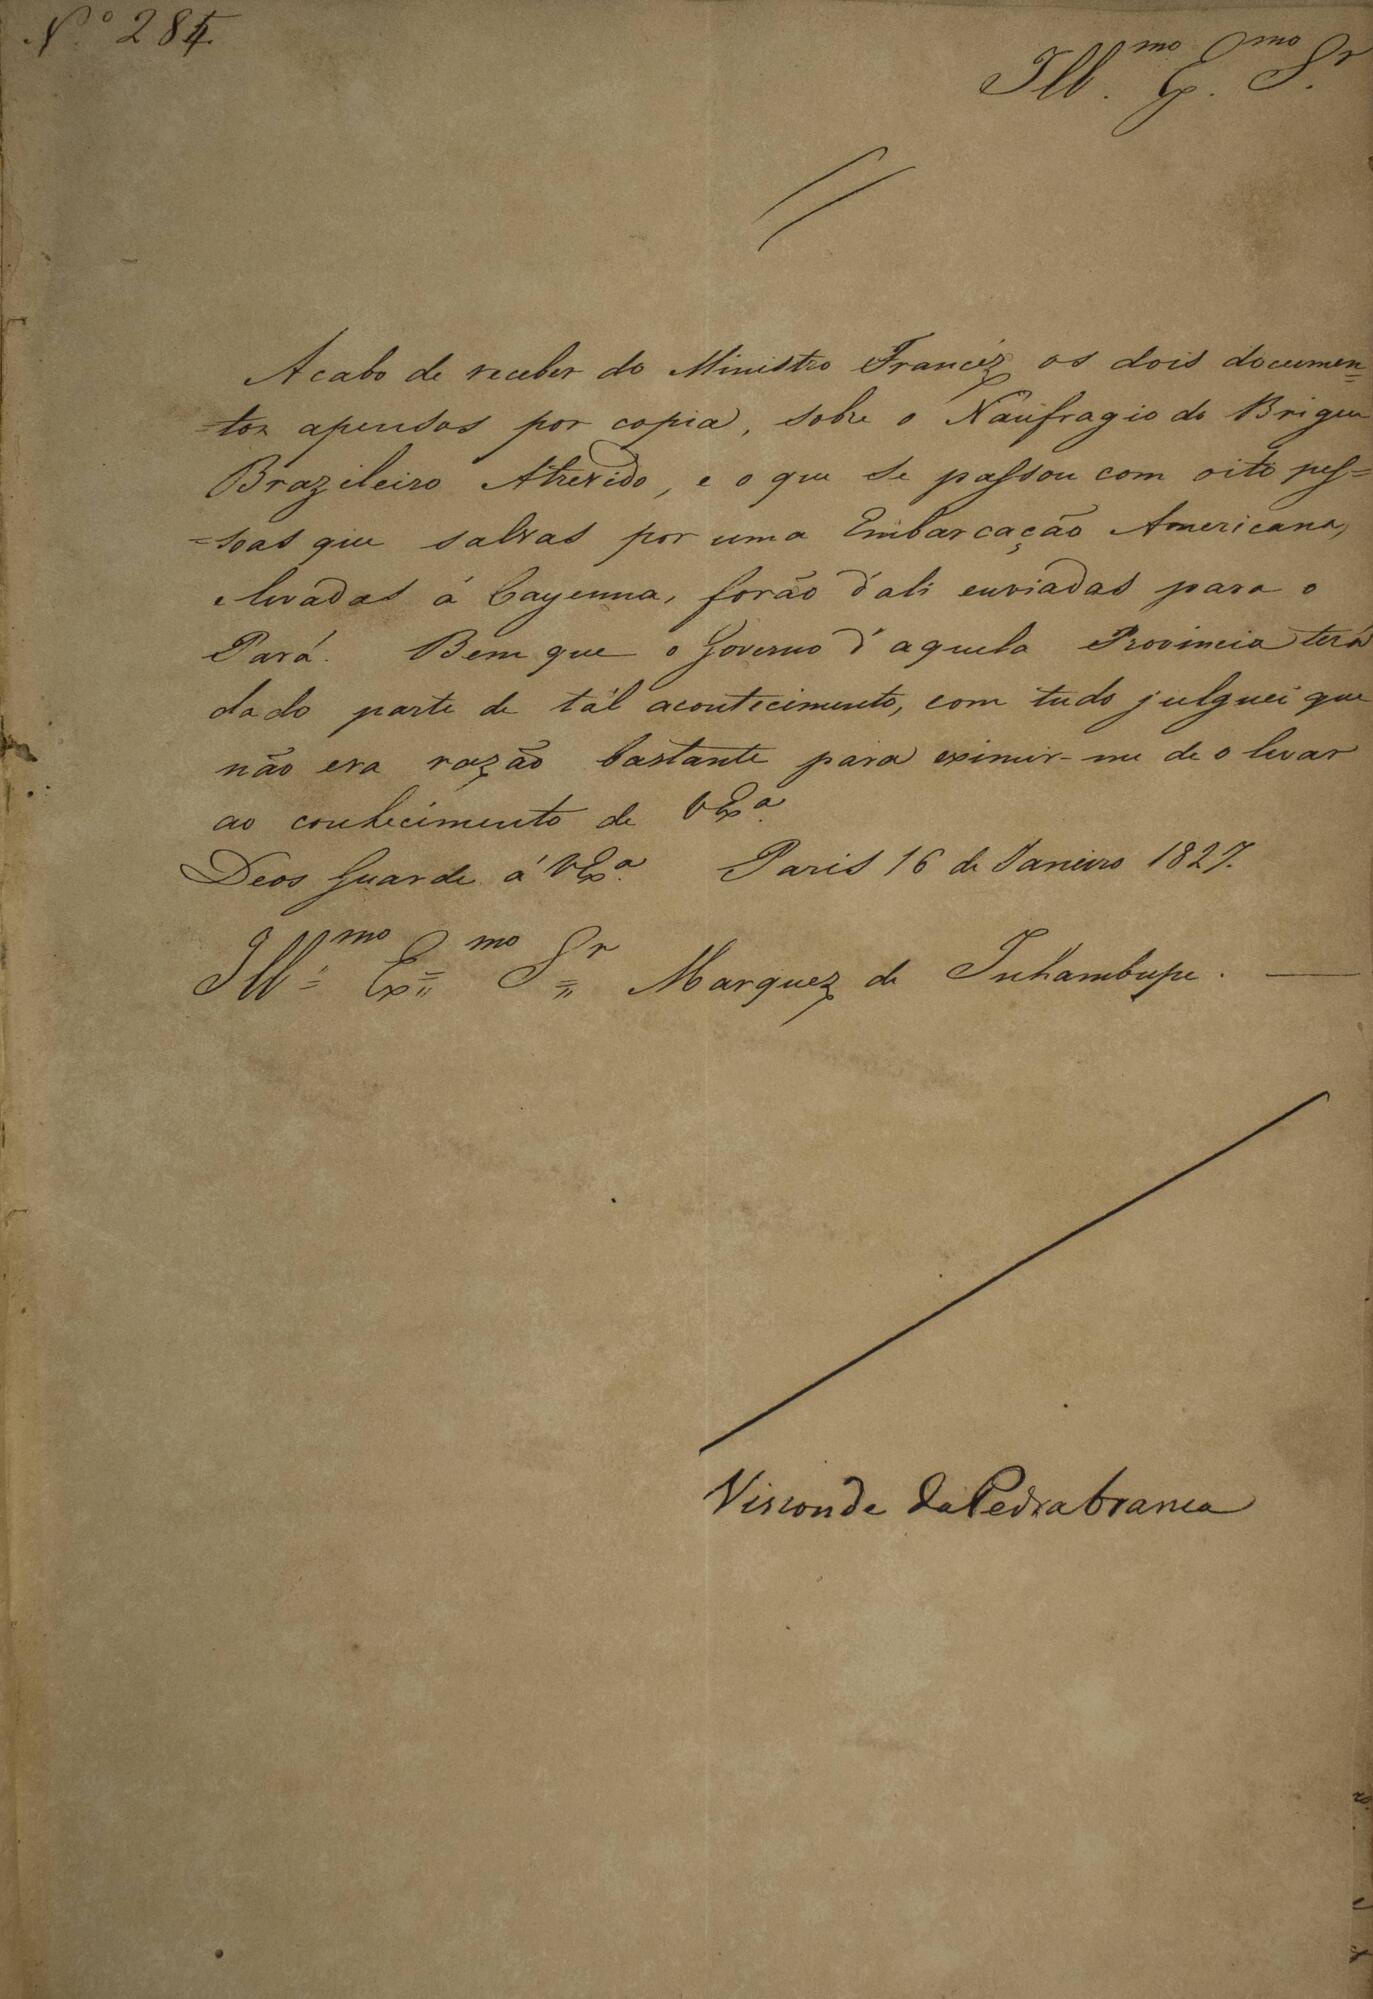 N.º 284
Ill.mo Ex.mo S.r
Acabo de receber do Ministro Francêz os dois documen=
=tos apensos por copia, sobre o Naufragio do Brigue
Brazileiro Atrevido, e o que se passou com oito pes=
=soas que salvas por uma Embarcação Americana,
e levadas á Cayenna, forão d'ali enviadas para o
Pará. Bem que o Governo d'aquela Provincia terá
dado parte de tál acontecimento, com tudo julguei que
não era razão bastante para eximir-me de o levar
ao conhecimento de VEx.a
Deos Guarde á VEx.a Paris 16 de Janeiro 1827.
Ill.mo Ex.mo S.r Marquez de Inhambupe.
Visconde da Pedrabranca